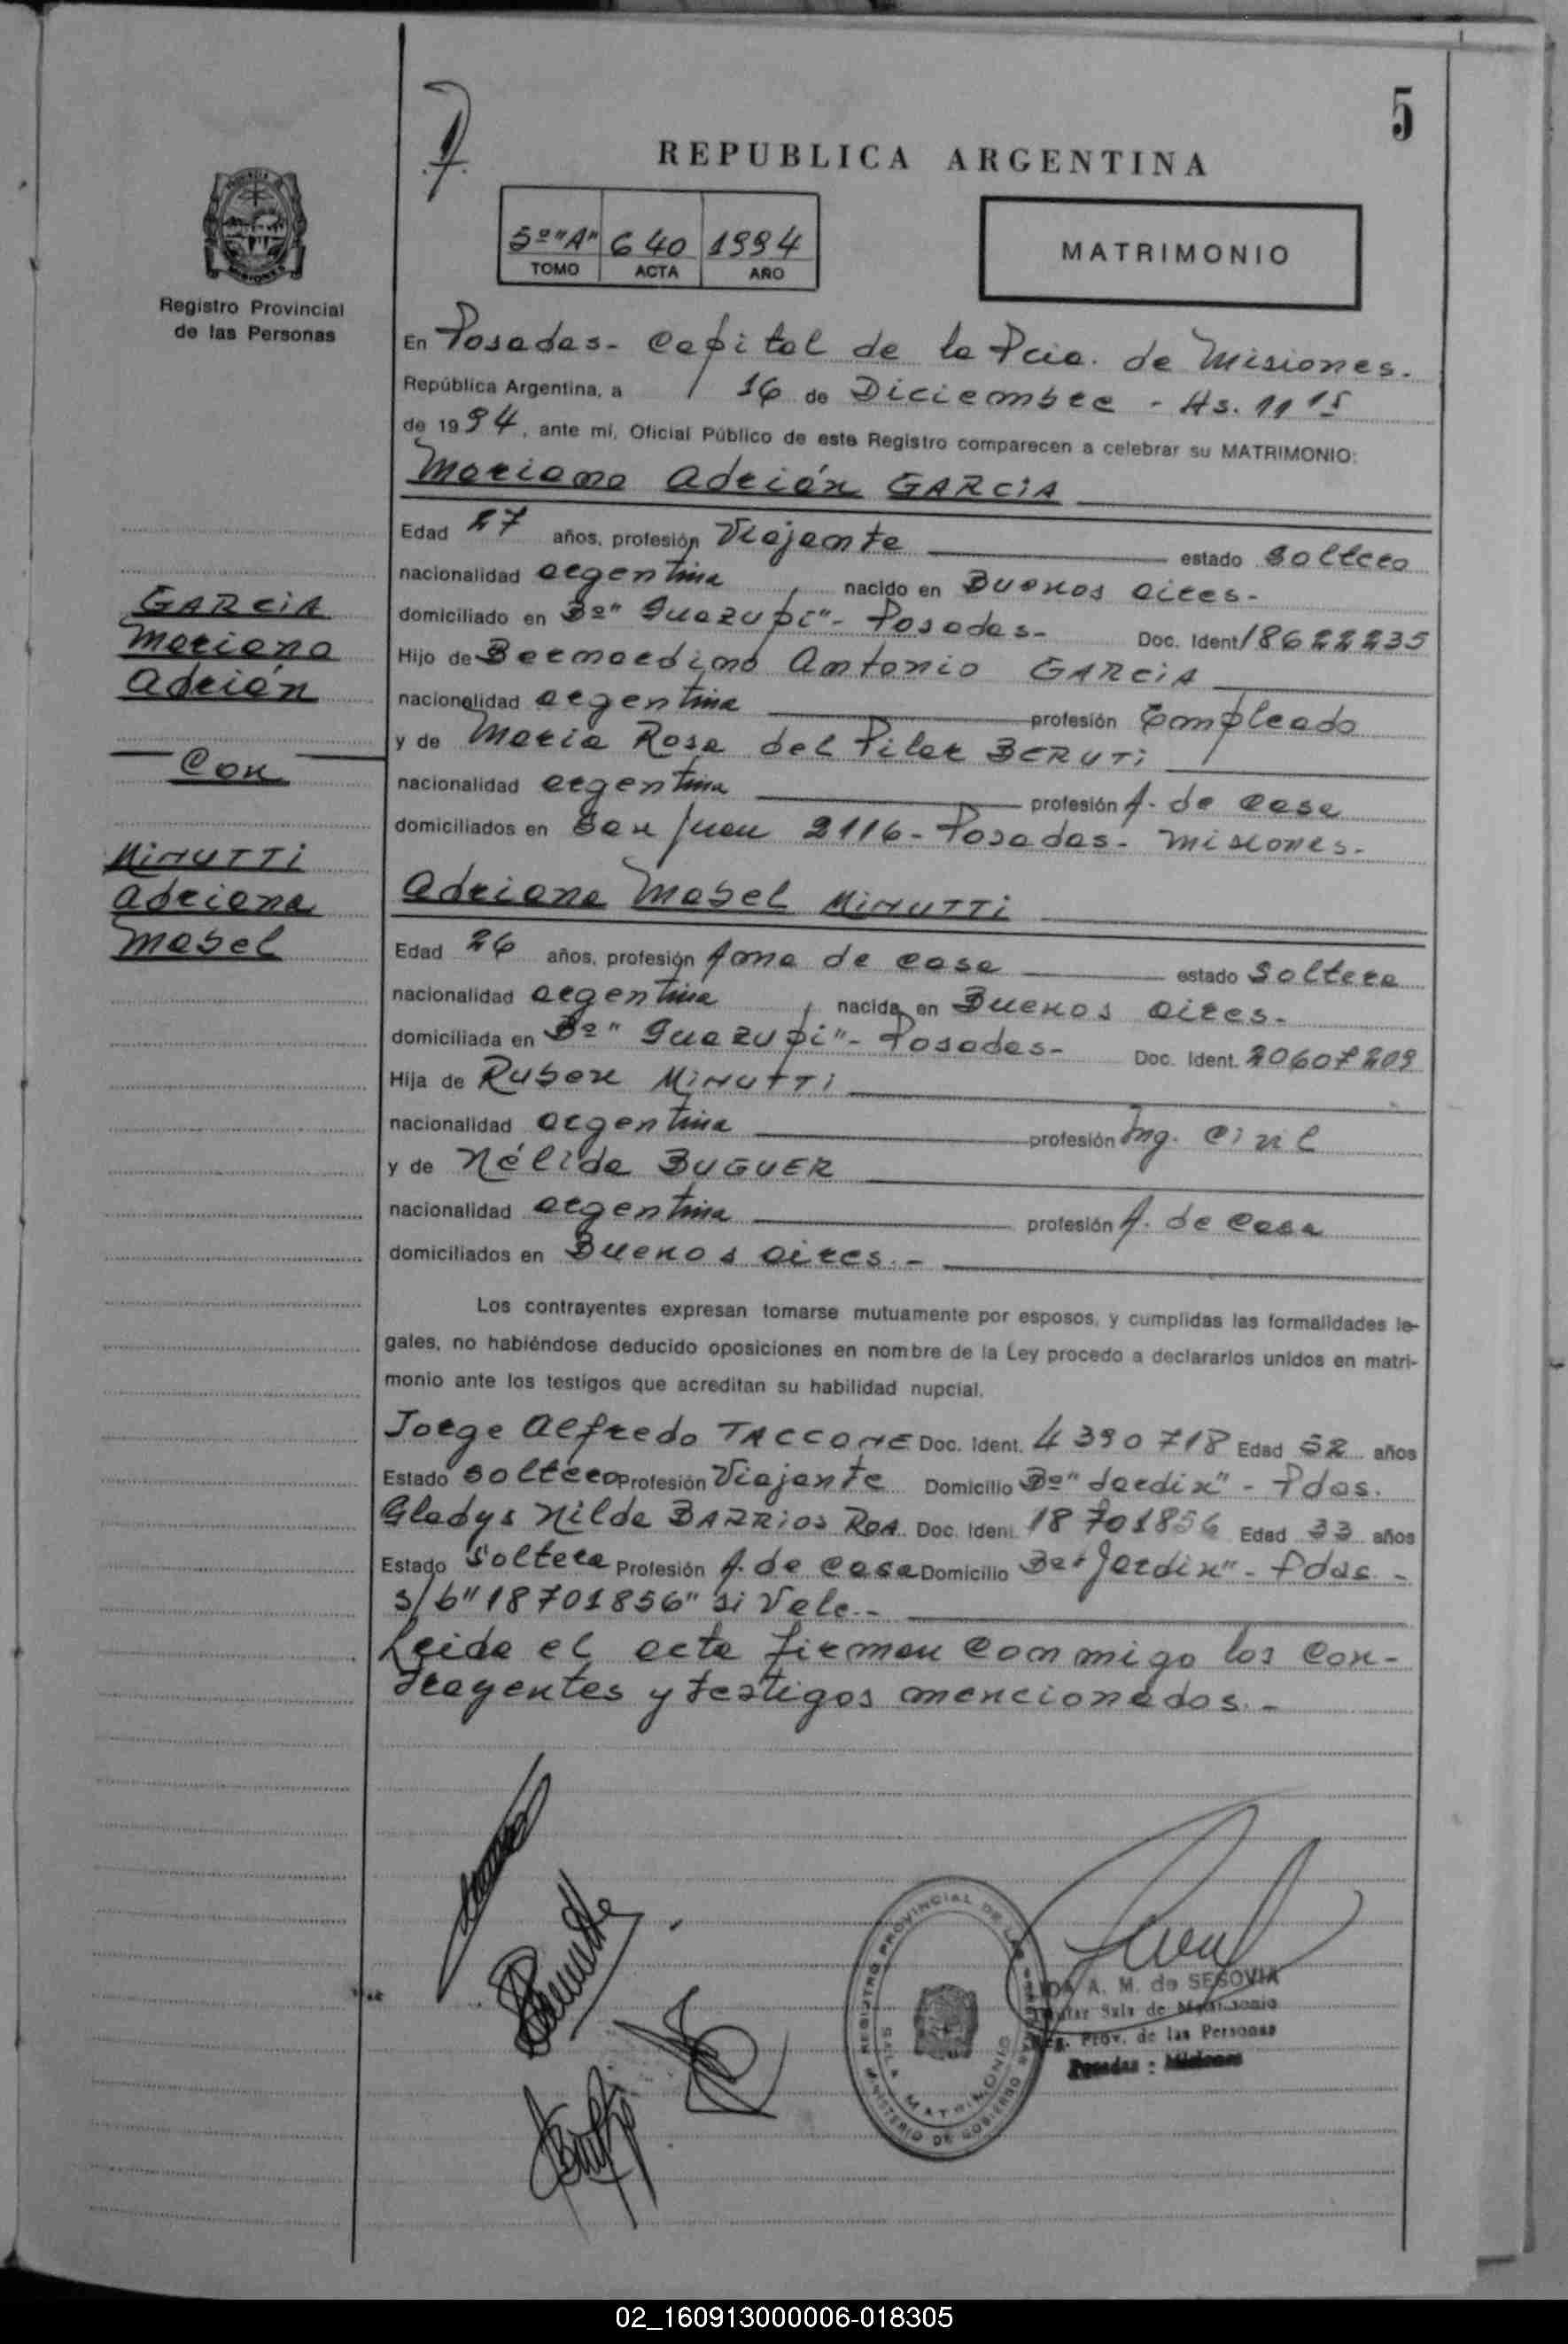 5
REPUBLICA ARGENTINA
5º"A" 640 1994
TOMO ACTA AÑO
MATRIMONIO
Registro Provincial
de las Personas
En Posadas - Capital de la Pcia. de Misiones.
República Argentina, a 16 de Diciembre - Hs. 11 15
de 1994, ante mí, Oficial Público de este Registro comparecen a celebrar su MATRIMONIO:
Mariano Adrián GARCIA
Edad 27 años, profesión Viajante estado soltero
nacionalidad argentina nacido en Buenos Aires.-
domiciliado en Bº "Guazupi"- Posadas- Doc. Ident 18622235
Hijo de Bernardino Antonio GARCIA
nacionalidad argentina profesión Empleado
y de María Rosa del Pilar BERUTI
nacionalidad argentina profesión A. de casa
domiciliados en San Juan 2116- Posadas- Misiones.
GARCIA
Mariano
Adrián
Con
MINUTTI
Adriana
Mabel
Adriana Mabel MINUTTI
Edad 26 años, profesión Ama de casa estado Soltera
nacionalidad argentina nacida en Buenos Aires.-
domiciliada en Bº "Guazupi"- Posadas- Doc. Ident. 20607209
Hija de Ruben MINUTTI
nacionalidad argentina profesión Ing. Civil
y de Nélida BUGUER
nacionalidad argentina profesión A. de casa
domiciliados en Buenos Aires.-
Los contrayentes expresan tomarse mutuamente por esposos, y cumplidas las formalidades le-
gales, no habiéndose deducido oposiciones en nombre de la Ley procedo a declararlos unidos en matri-
monio ante los testigos que acreditan su habilidad nupcial.
Jorge Alfredo TACCONE Doc. Ident. 4390718 Edad 52 años
Estado soltero Profesión Viajante Domicilio Bº "Jardín" - Pdas.
Gladys Nilda BARRIOS ROA Doc. Ident. 18701856 Edad 33 años
Estado Soltera Profesión A. de casa Domicilio Bº "Jardín" - Pdas.-
s/b "18701856" si Vale.-
Leida el acta firman conmigo los con-
trayentes y testigos mencionados.-
REGISTRO PROVINCIAL DE LAS PERSONAS
SALA MATRIMONIO
MINISTERIO DE GOBIERNO
A. M. de SEGOVIA
Titular Sala de Matrimonio
Reg. Prov. de las Personas
Posadas - Misiones
02_160913000006-018305